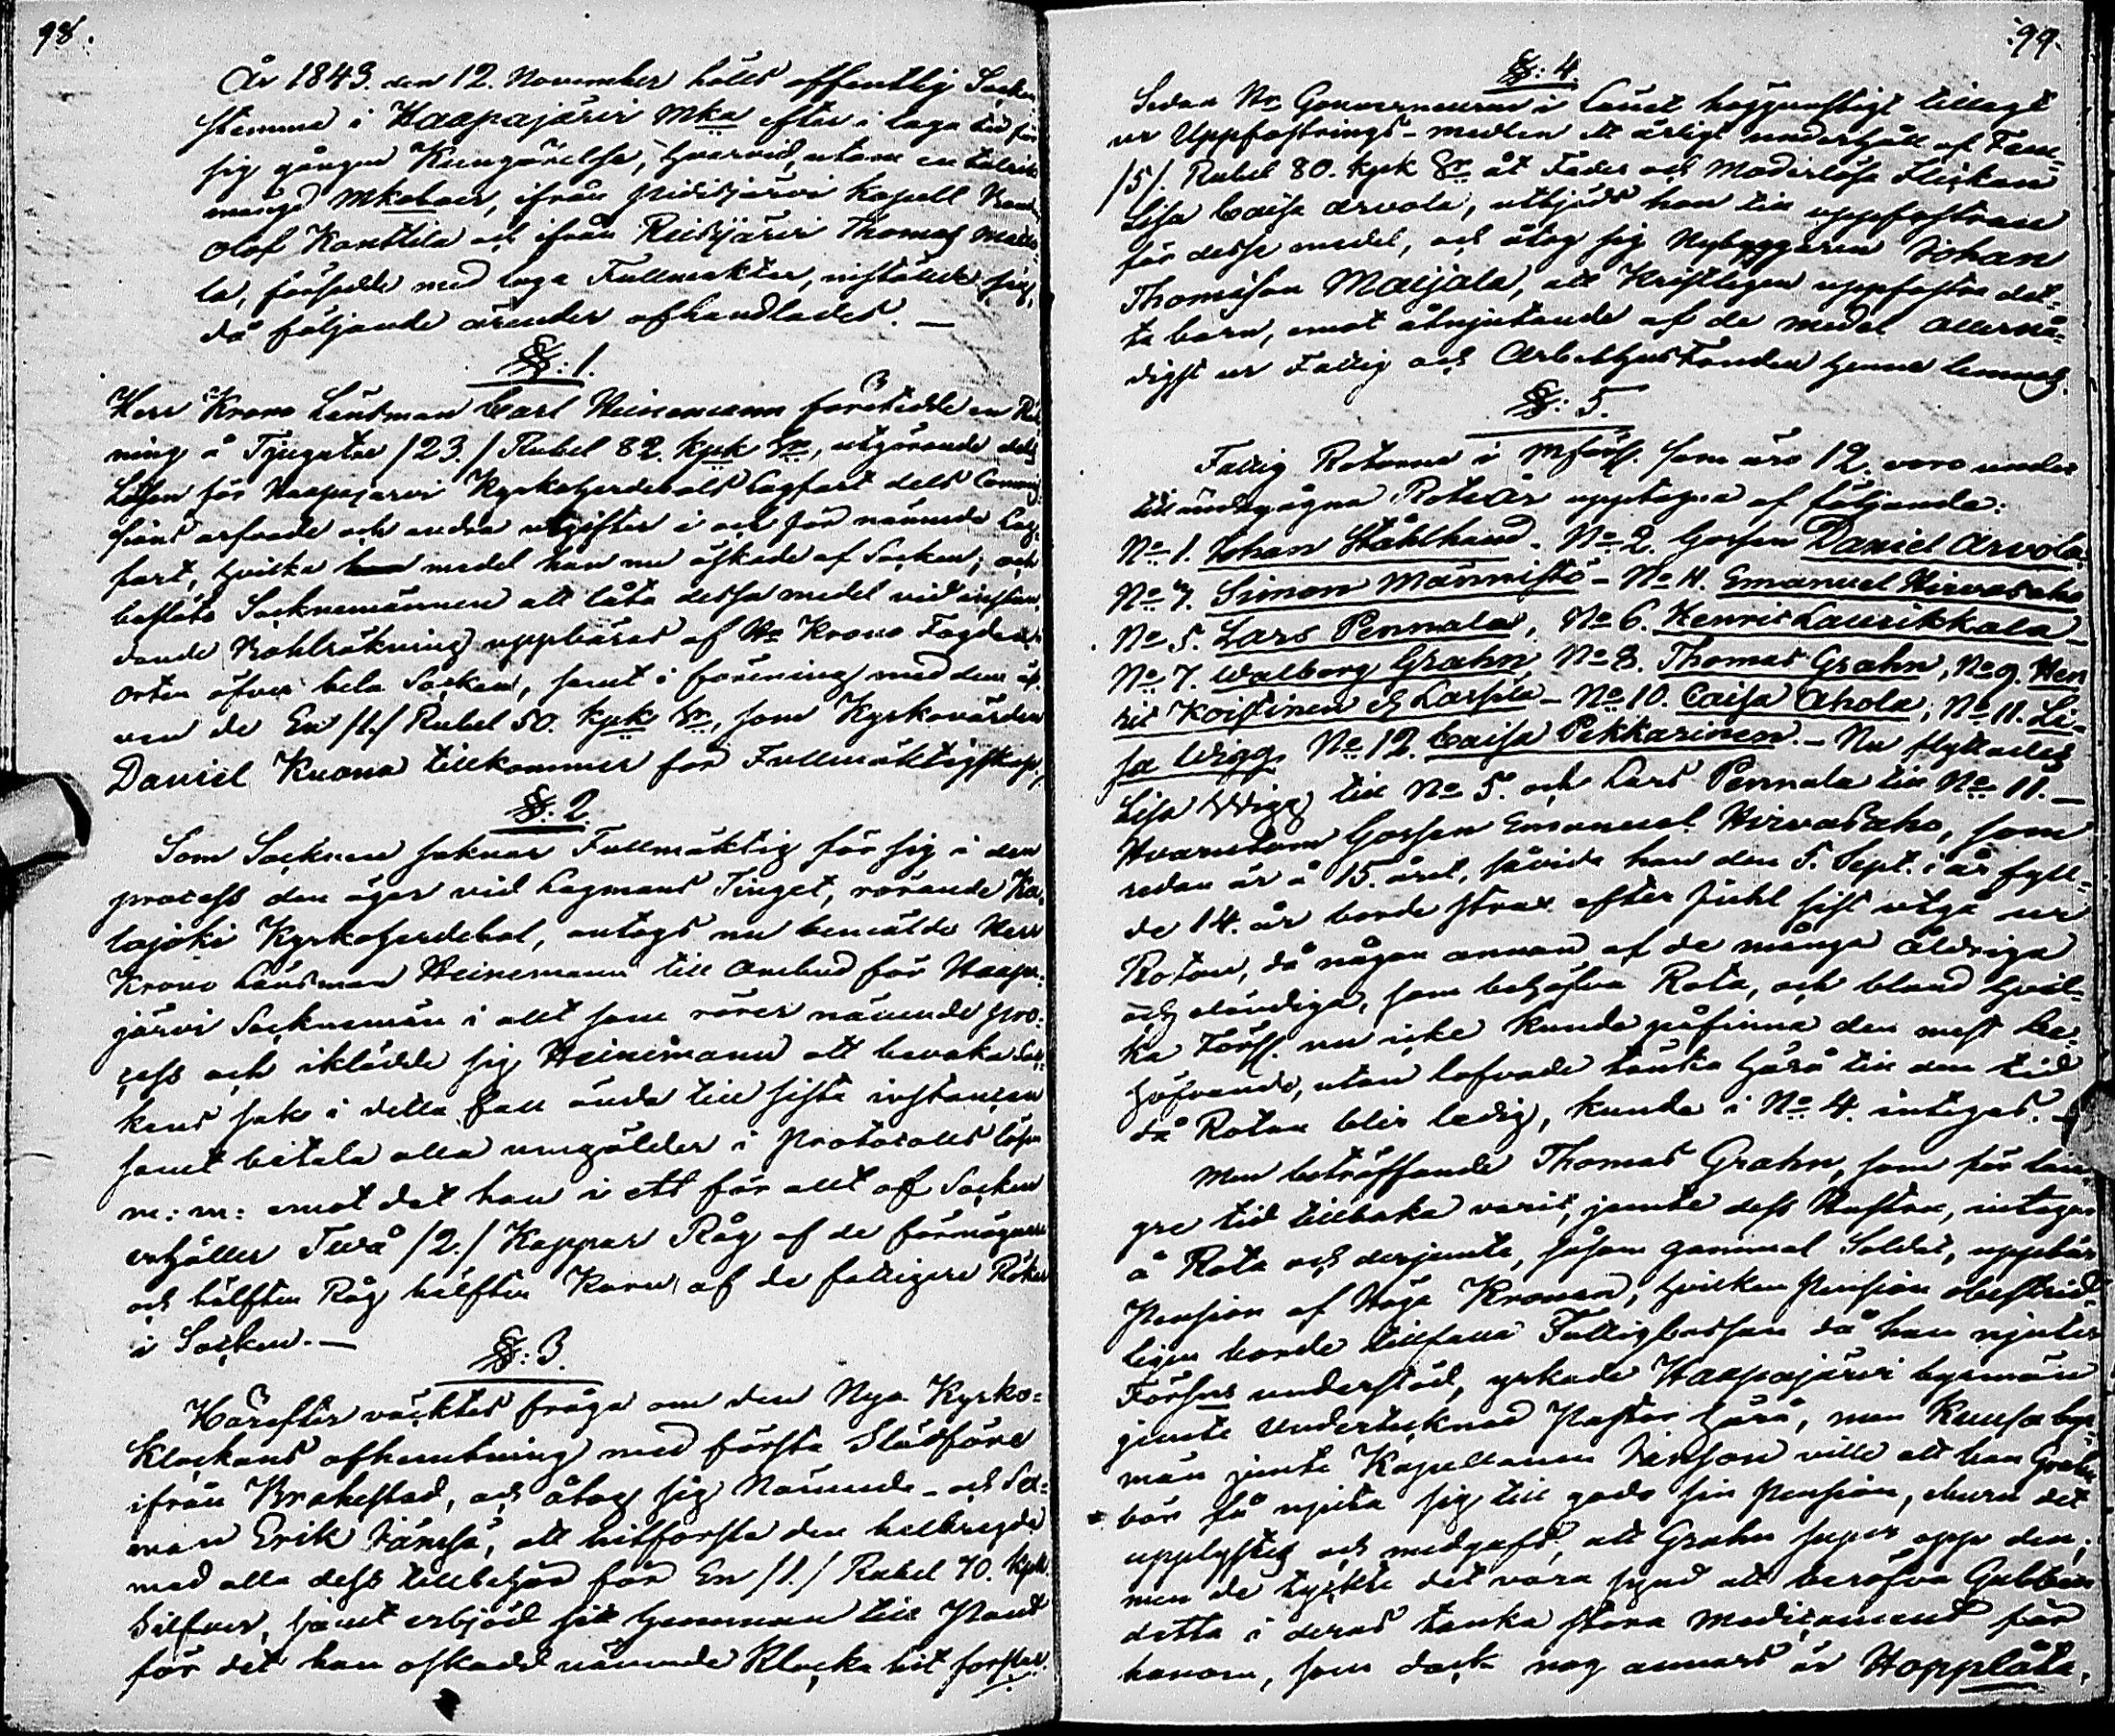 98.
År 1843. den 12. November hölls offentlig Socken
stemma i Haapajärvi Mka efter i laga tid för
sig gången Kungörelse, hvarvid, utom en talrik
mängd Mkaboer, ifrån Pidisjärvi Kapell
Olof Kanttila och ifrån Reisjärvi Thomas
la, försedde med laga Fullmakter, instälde sig,
då följande ärender afhandlades. —
§: 1.
Herr Krono Länsman Carl Heinemann företedde en Räk
ning å Tjugutre /23./ Rubel 82. kpk Sr, utgörande dels
Lösen för Haapajärvi Kyrkoherdebols Lagfart dels Commis
sions arfvode och andra utgifter i och för nämnde Lag
fart, hvilka medel han nu äskade af Socken; och
beslöto Socknemännen att låta dessa medel vid instun
dande Kohlräkning uppbäras af Hr Krono Fogden i
Orten öfver hela Socken, samt i förening med dem äf
ven de En /1./ Rubel 50. kpk Sr, som Kyrkovärden
Daniel Kuona tillkommer för Fullmäktigskap.
§. 2.
Som Socknen saknar Fullmäktig för sig i den
process den äger vid Lagmans Tinget, rörande Ka-
lajoki Kyrkoherdebol, antogs nu bemälde Herr
Krono Länsman Heinemann till Ombud för Haapa-
järvi Socknemän i allt som rörer nämnde pro-
cess och iklädde sig Heinemann att bevaka Soc-
kens sak i detta fall ända till sista instansen
samt betala alla umgälder i Protocolls lösen
m: m: emot det han i ett för allt af Socken
erhåller Twå /2./ Kappar Råg af de förmögnare
och hälften Råg hälften Korn af de fattigare Röken
i Socken. —
§: 3.
Härefter väcktes fråga om den Nya Kyrko-
klockans afhemtning med första Slädföre
ifrån Brahestad, och åtog sig Nämnde- och Sex-
man Erik Jämsä, att hitforsla den helbregda
med alla dess tillbehör för En /1./ Rubel 70. kpk
Silfver, samt erbjöd sit Hemman till Pant
för det han oskadd nämnde Klocka hit forslar.
99.
§: 4.
Sedan Hr Gouverneuren i Länet höggunstigt tillagt
ur Uppfostrings-medlen ett årligt underhåll af Fem
/5/. Rubel 80. kpk Sr åt Fader och Moderlösa Flickan
Lisa Caisa Arvola, utbjöds hon till uppfostran
för desse medel, och åtog sig Nybyggaren Johan
Thomasson Maijala, att Kristligen uppfostra det-
ta barn, emot åtnjutande af de medel allernå-
digst ur Fattig och Arbetshus Fonden henne lemnas.
§: 5.
Fattig Rotorne i Mförs. som äro 12. voro under
tilländagågna Roteår upptagna af följande:
No 1. Johan Stålhand. No 2. Gossen Daniel Arvola.
No 3. Simon Männistö - No 4. Emanuel Hirvasaho
No 5. Lars Pennala, No 6. Henric Laurikkala -
No 7. Walborg Grahn, No 8. Thomas Grahn, No 9. Hen
ric Koistinen & Lassila - No 10. Caisa Ahola, No 11. Li-
sa Wigg, No 12. Caisa Pekkarinen. - Nu flyttades
Lisa Wigg till No 5. och Lars Pennala till No 11. —
Hvarutom Gossen Emanuel Hirvasaho, som
redan är å 15. året, såvida han den 5. Sept. i år fyll-
de 14. år borde strax efter Juhl sist utgå ur
Rotan, då någon annan af de många åldriga
och eländiga, som behöfva Rota, och bland hvil-
ka Förs. nu icke kunde påfinna den mest be-
höfvande, utan lofvade tänka härå till den tid
då Rotan blir ledig, kunde i No 4. intagas. —
Men beträffande Thomas Grahn, som för län-
gre tid tillbaka varit, jemte dess Hustru, intagen
å Rota och derjemte, såsom gammal Soldat, uppbär
Pension af Höga Kronan, hvilken Pension obestrid-
ligen borde tillfalla Fattigkassan då han njuter
Förs:ns understöd, yrkade Haapajärvi byemän
jemte Undertecknad Pastor härå, men Kuusa bye-
män jemte Kapellanen Jenson ville att han Grahn
bör få njuta sig till godo sin Pension, ehuru det
upplystes och medgafs, att Grahn super opp den;
men de tyckte det vara synd att beröfva Gubben
detta i deras tanka stora Medicament för
honom, som dock nog annars är Hopplåta.